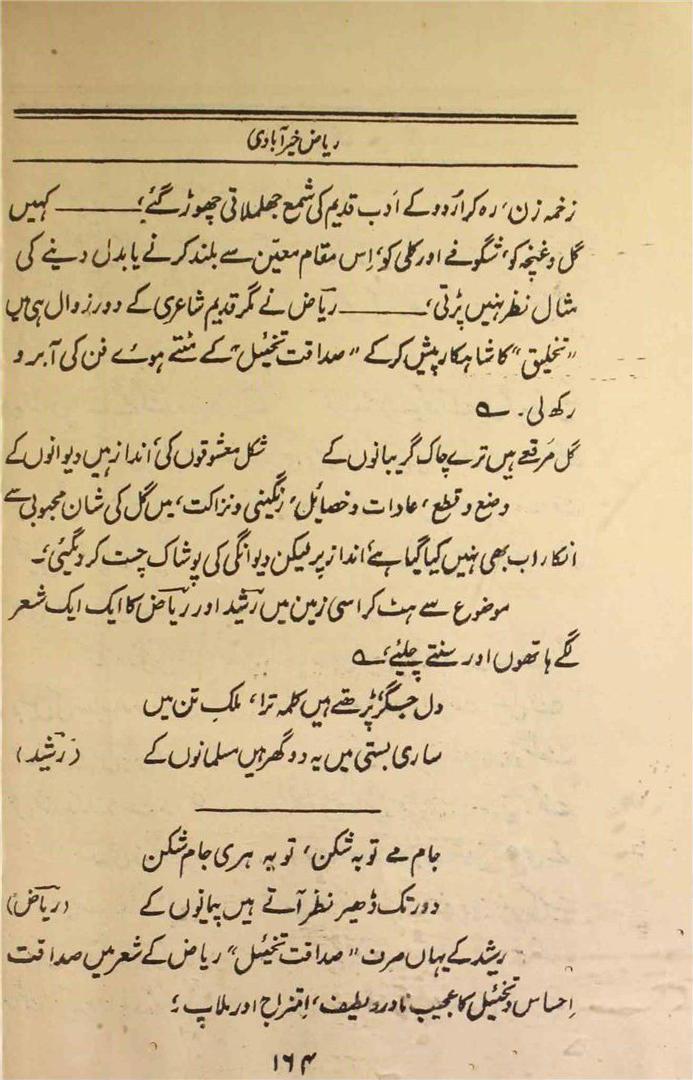 ریاض خیرآبادی
زخمہ زن، رہ کر اُردو کے اَدب قدیم کی شمع جھلملاتی چھوڑ گئے؛ ——— کہیں
گل و غنچہ کو، شگوفے اور کلی کو، اِس مقام معیّن سے بلند کرنے یا بدل دینے کی
مثال نظر نہیں پڑتی، ——— ریاضؔ نے مگر قدیم شاعری کے دور زوال ہی میں
"تخلیق" کا شاہکار پیش کر کے "صداقت تخیّل" کے مٹتے ہوئے فن کی آبرو
رکھ لی۔ ؎
گل مرقعے ہیں ترے چاک گریبانوں کے شکل معشوقوں کی، انداز ہیں دیوانوں کے
وضع و قطع، عادات و خصائل، رنگینی و نزاکت، میں گل کی شان محبوبی سے
انکار اب بھی نہیں کیا گیا ہے، انداز پر لیکن دیوانگی کی پوشاک چست کر دیگئی،۔
موضوع سے ہٹ کر اسی زمین میں رشیدؔ اور ریاضؔ کا ایک ایک شعر
لگے ہاتھوں اور سنتے چلیئے، ؎
دل جگر، پڑھتے ہیں کلمہ ترا، ملکِ تن میں
ساری بستی میں یہ دو گھر ہیں مسلمانوں کے (رشیدؔ)
جام مے توبہ شکن، توبہ مری جام شکن
دور تک ڈھیر نظر آتے ہیں پیمانوں کے (ریاضؔ)
رشید کے یہاں صرف "صداقت تخیّل" ریاض کے شعر میں صداقت
اِحساس و تخیّل کا عجیب نادر و لطیف، اِمتزاج اور ملاپ؛
۱۶۴